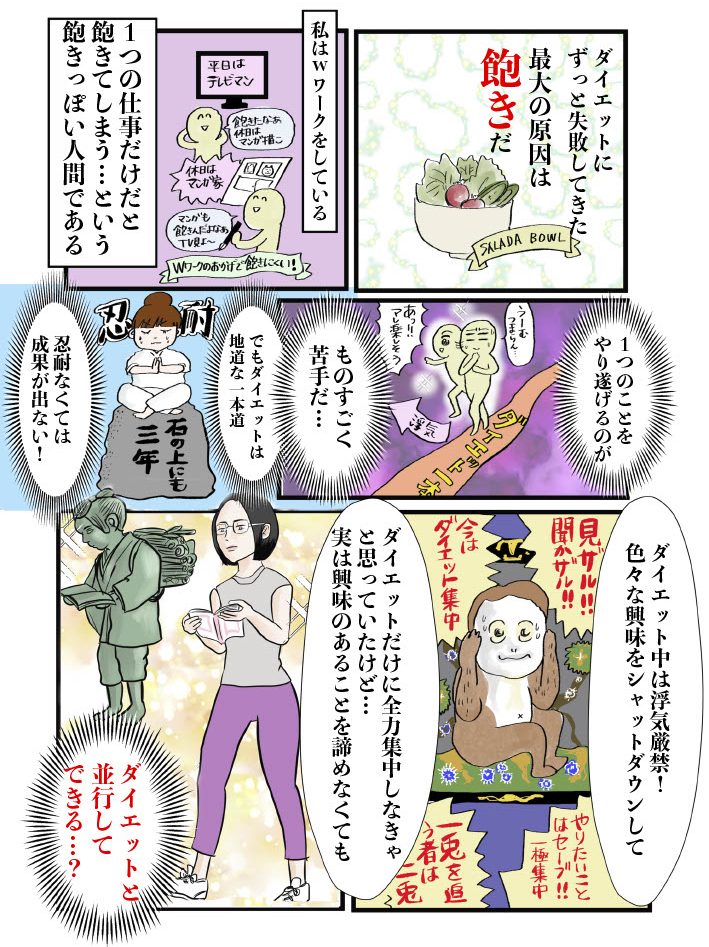 ダイエットに
ずっと失敗してきた
最大の原因は
飽きだ
SALADA BOWL
私はWワークをしている
平日は
テレビマン
飽きたなぁ
休日は
マンガ描こ
休日は
マンガ家
マンガも
飽きんだよなぁ
TV見よ〜
Wワークのおかげで飽きにくい!
1つの仕事だけだと
飽きてしまう…という
飽きっぽい人間である
1つのことを
やり遂げるのが
うーむ
つまらん…
あっ!!
アレ楽しそう
浮気
ダイエット一本
ものすごく
苦手だ…
でもダイエットは
地道な一本道
忍耐
石の上にも
三年
忍耐なくては
成果が出ない!
ダイエット中は浮気厳禁!
色々な興味をシャットダウンして
見ザル!!
聞かザル!!
今は
ダイエット集中
やりたいこと
はセーブ!!
一極集中
一兎を追
う者は
二兎
ダイエットだけに全力集中しなきゃ
と思っていたけど…
実は興味のあることを諦めなくても
ダイエットと
並行して
できる…?